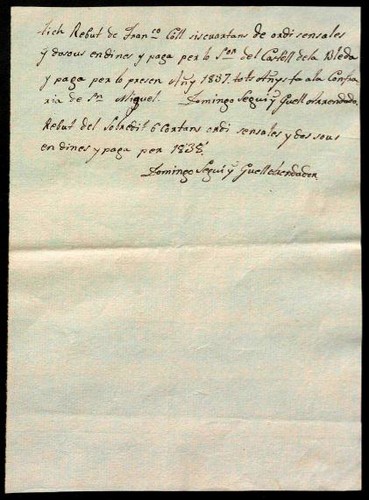 tich Rebut de Fran.co Coll siscuartans de ordi sensales
y dosous en dines y paga per lo S.or del Castell dela Bleda
y paga per lo presen Añy 1837. tots Añys ta ala Confra
ria de S.n Miquel. Domingo Segui y Guell Arrendado.
Rebut del Sobredit 6 cortans ordi sensales y dos sous
en dines y paga per 1838.
Domingo Segui y Guell Arrendador